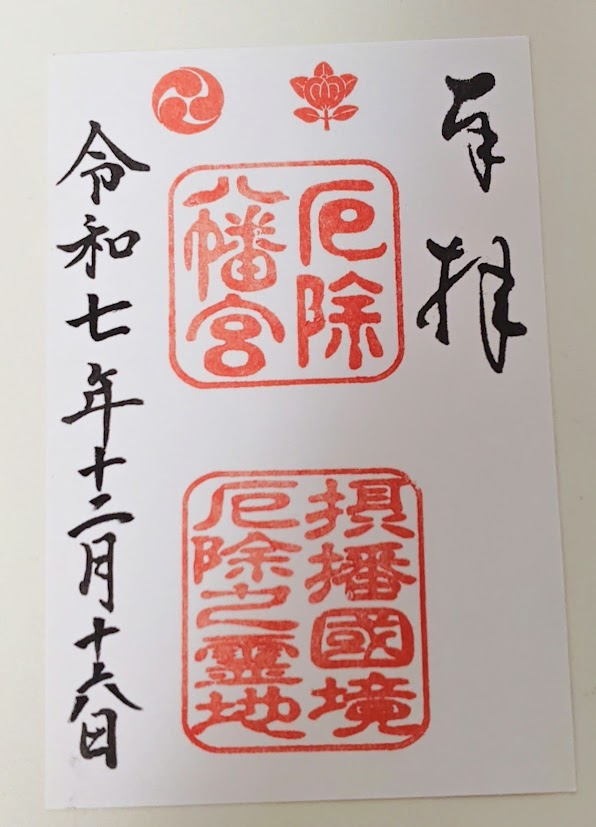 奉拝
厄除
八幡宮
摂播國境
厄除之霊地
令和七年十二月十六日